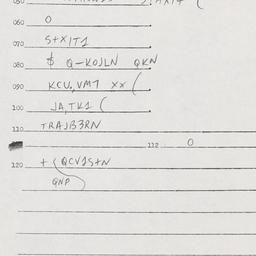 060 O
070 S+XIT1
080 $ Q-KOJLN QKN
090 KCU,VM7 XX (
100 JA,TK1 (
110 TRAJB3RN
112 O
120 + ( QCV1S+N
QNP